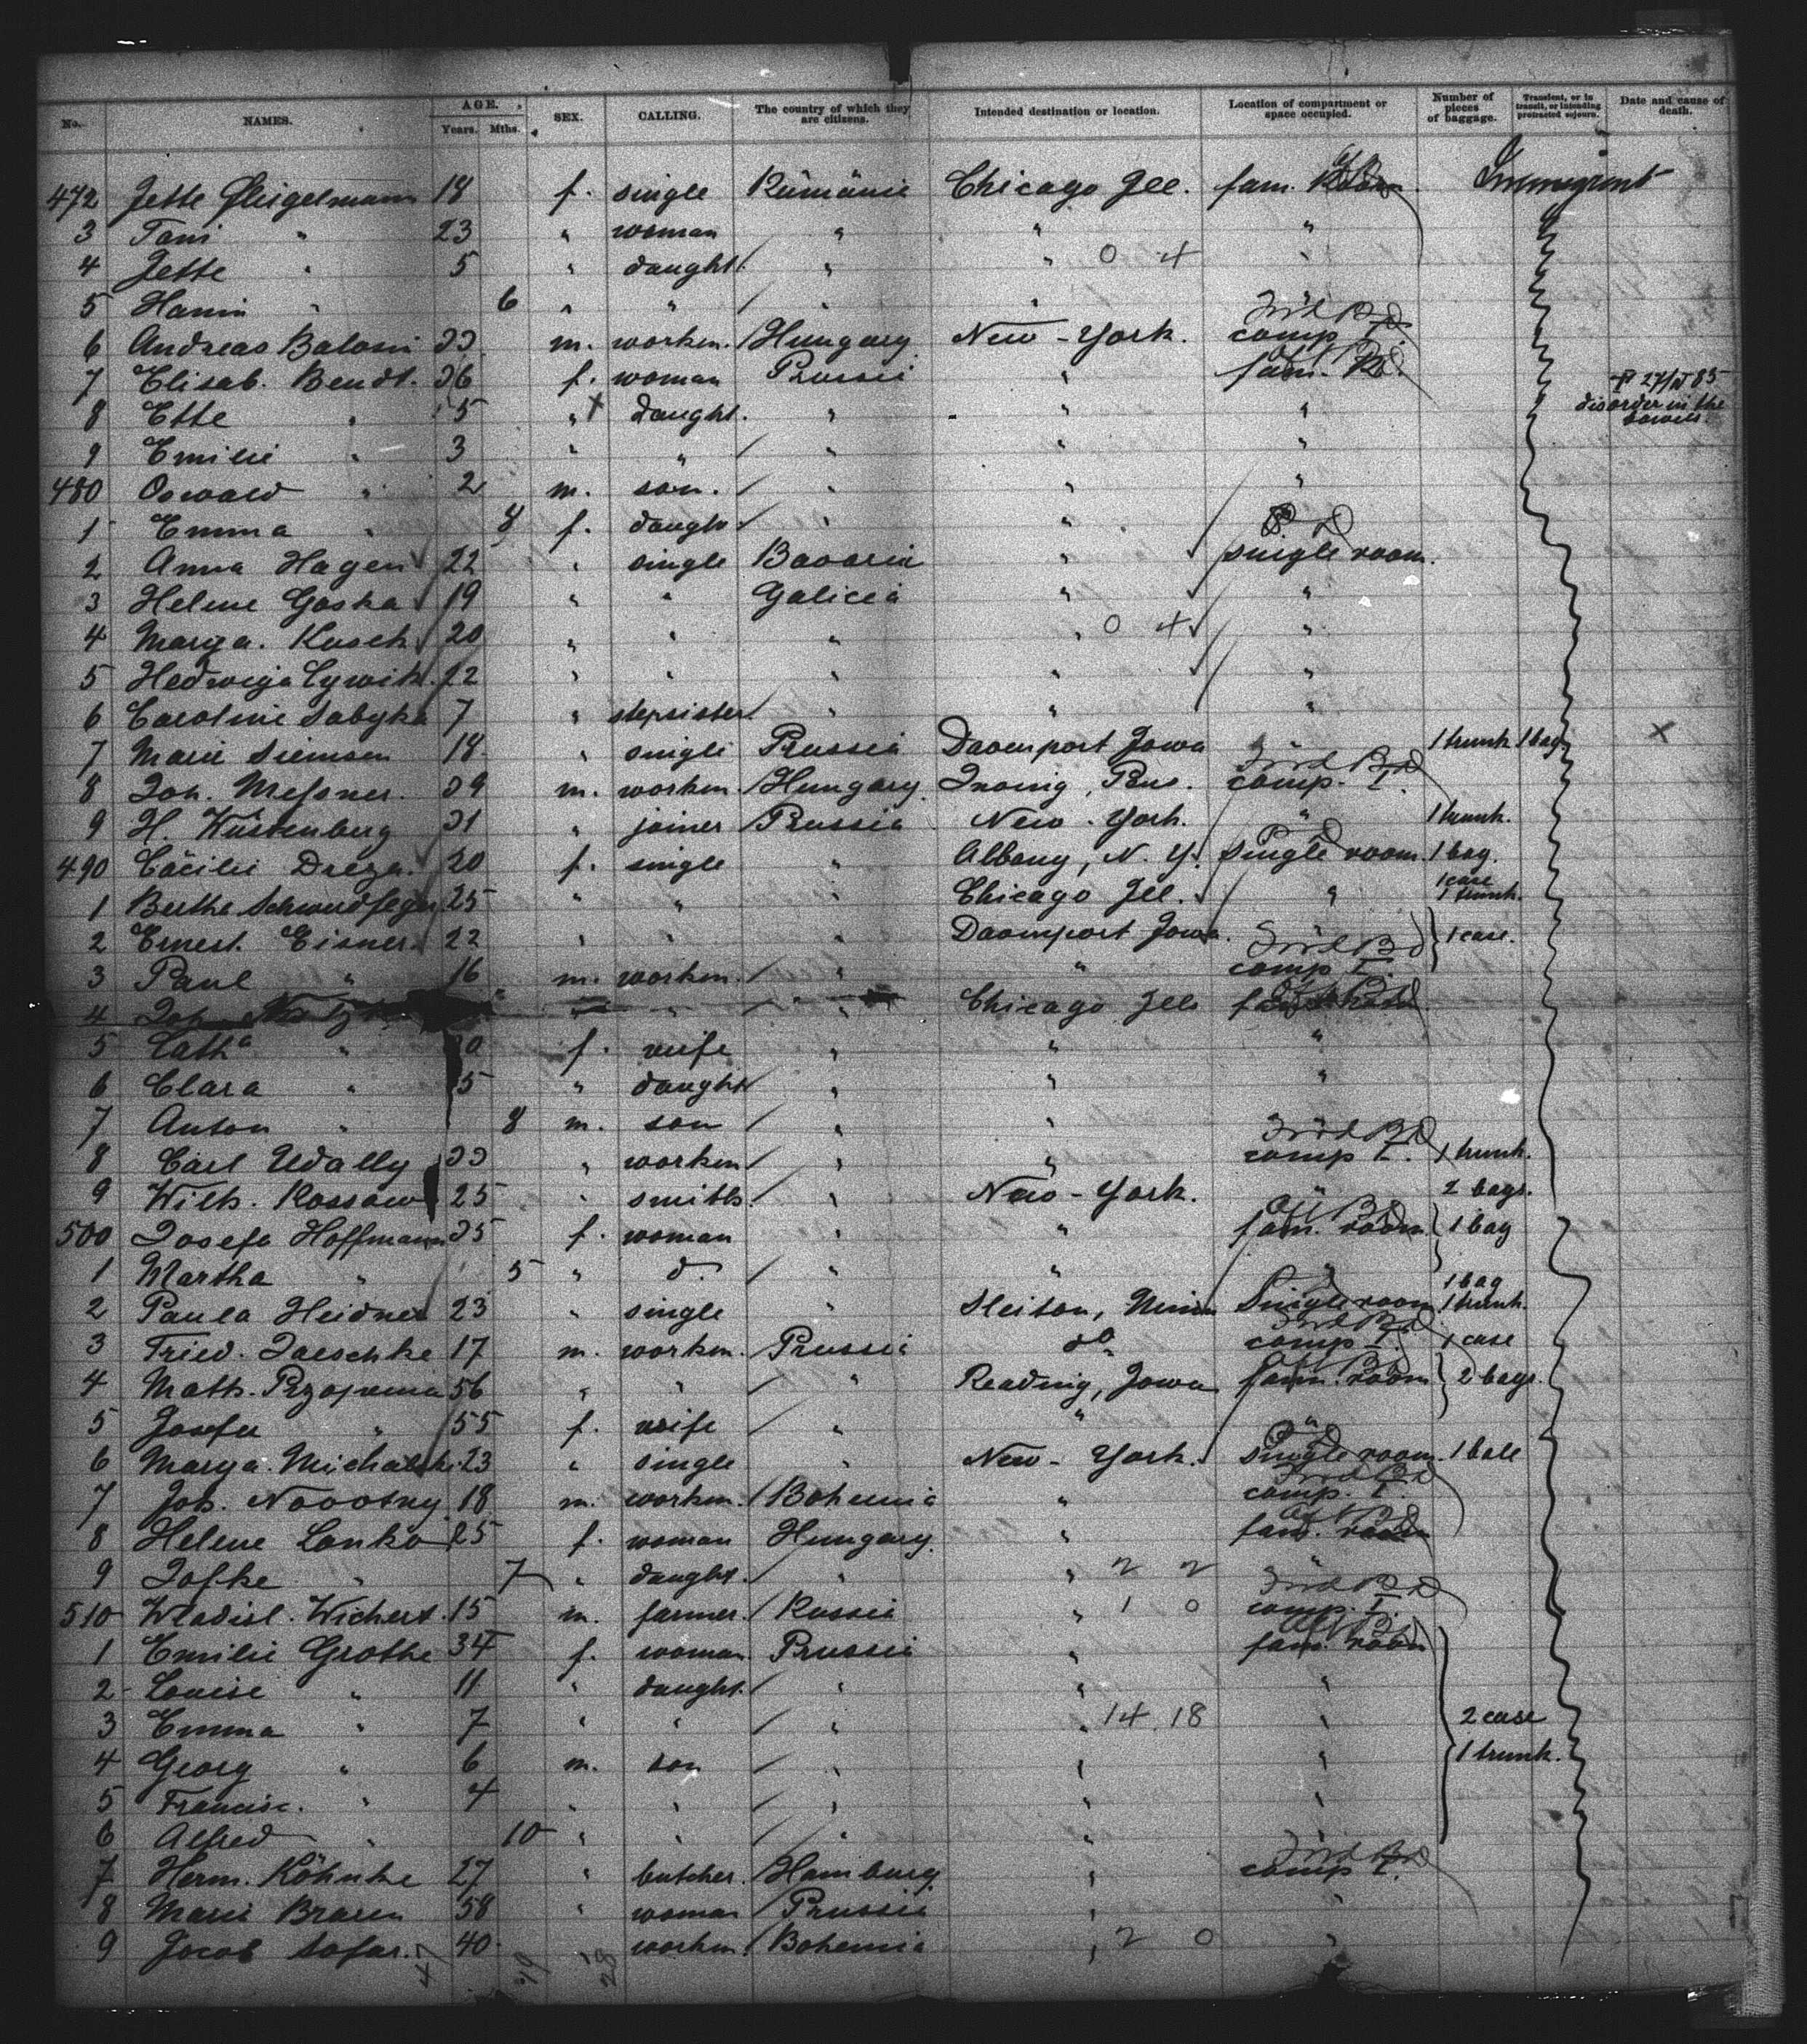 No. NAMES. AGE. Years. Mths. SEX. CALLING. The country of which they are citizens. Intended destination or location. Location of compartment or space occupied. Number of pieces of baggage. Transient, or in transit, or intending protracted sojourn. Date and cause of death.
472 Jette 18 f. single Rumänie Chicago Ill. fam. Immigrant
3 Toni " 23 " woman " " "
4 Jette " 5 " daught. " " 0 4 "
5 Hanni " 6 " " " " "
6 Andreas Balassi 33 m. workm. Hungary New-York. comp. I.
7 Elisab. Bendt. 36 f. woman Prussi " fam. R. 85
8 Ette " 5 " x daught. " " " disorder in the bowels.
9 Emilie " 3 " " " " "
480 Oswald " 2 m. son. " " "
1 Emma " 8 f. daught. " "
2 Anna Hagen 22 " single Bavaria " single room.
3 Helene Goska 19 " " Galicia " "
4 Marga. Kusch 20 " " " " 0 4 "
5 Hedwiga Cywik. 22 " " " " "
6 Caroline Sabyka 7 " stepsister " " "
7 Marie Siemsen 18 " single Prussia Davenport Iowa " 1 trunk 1 bag x
8 Joh. Meßner. 39 m. workm. Hungary. comp. I.
9 H. Wüstenberg 31 " joiner Prussia New-York. " 1 trunk.
490 Cäcilie Dreza. 20 f. single " Albany, N. Y. single room. 1 bag.
1 Berthe 25 " " " Chicago Ill. " 1 case 1 trunk.
2 Ernest. Eisner. 22 " " " Davenport Iowa. 1 case.
3 Paul " 16 m. workm. " " comp I.
4 Joh. " " " Chicago Ills
5 Cath a " f. wife " " "
6 Clara " 5 " daught " " "
7 Anton " 8 m. son " "
8 Carl Udally 33 " workm " " comp I. 1 trunk.
9 Wilh. Rossow 25 " smith. " New-York. " 2 bags.
500 Josefa Hoffmann 35 f. woman " " fam. room. 1 bag
1 Martha " 5 " d. " " "
2 Paula Heidner 23 " single " Single room 1 bag 1 trunk.
3 Fried. Jaeschke 17 m. workm. Prussia do comp. I. 1 case
4 Math. 56 " " " Reading, Iowa fam. room 2 bags.
5 Josefa " 55 f. wife " " "
6 Marga. Michalski. 23 " single " New-York. single room. 1 bale
7 Joh. Novotny 18 m. workm. Bohemia " comp. I.
8 Helene Lanko 25 f. woman Hungary. " fam. room
9 " 7 " daught. " " 2 2 "
510 Wladisl. Wichert. 15 m. farmer. Russia " 1 0 comp. I.
1 Emilie Grothe 34 f. woman Prussia " fam. room
2 Louise " 11 " daught. " " "
3 Emma " 7 " " " " 14 18 " 2 case
4 Georg " 6 m. son " " " 1 trunk.
5 Francisc. " 4 " " " " "
6 Alfred " 10 " " " " "
7 Herm. Köhnke 27 " butcher. Hamburg " comp I.
8 Marie Braren 58 " woman Prussia " "
9 Jacob Safar. 40 " workm. Bohemia " 2 0 "
47 19 28